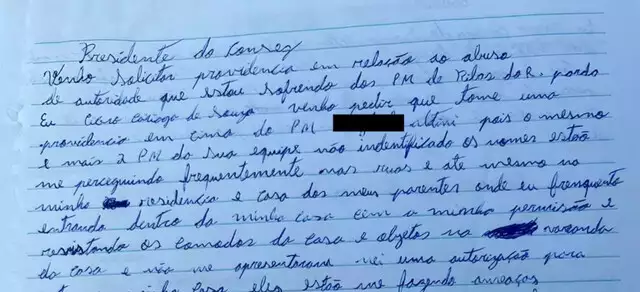 Presidente do Conseg
Venho solicitar providencia em relação ao abuso
de autoridade que estou sofrendo dos PM de Ribas do R. pardo
Eu Cicero de Souza venho pedir que tome uma
providencia em cima do PM altini pois o mesmo
e mais 2 PM da sua equipe não indentificado os nomes estão
me perceguindo frequentemente nas ruas e até mesmo na
minha residencia e casa dos meus parentes onde eu frenquento
entrando dentro da minha casa cem a minha permisão e
revistando os comodos da casa e objetos na varanda
da casa e não me apresentaram nei uma autorização para
minha casa eles estão me fazendo ameaças